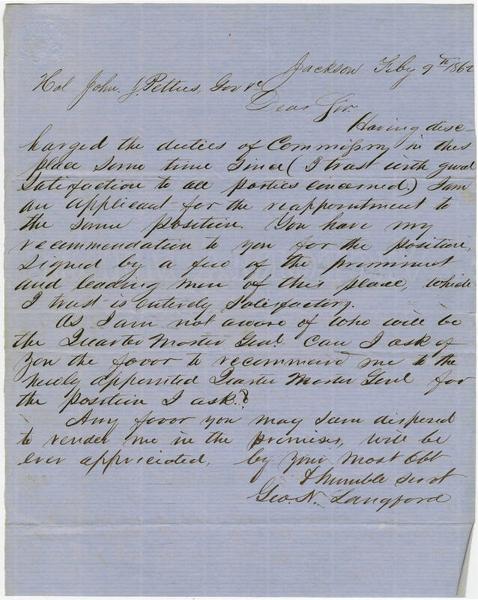 Jackson Feby 9th 1862
Hol John. J. Pettus, Gov
Dear Sir.
Having disc-
harged the duties of Commissary in this
place some time since (I trust with good
Satisfaction to all parties concerned) I am
an applicant for the reappointment to
the same position. You have my
recommendation to you for the position,
signed by a few of the prominent
and leading men of this place, which
I trust is entirely satisfactory.
As I am not aware of who will be
the Quarter Master Genl. Can I ask of
you the favor to recommend me to the
newly appointed Quarter Master Genl for
the position I ask?
Any favor you may I am disposed
to render me in the premises, will be
ever appriciated, by your most Obt
& humble Servt
Geo. N. Langford